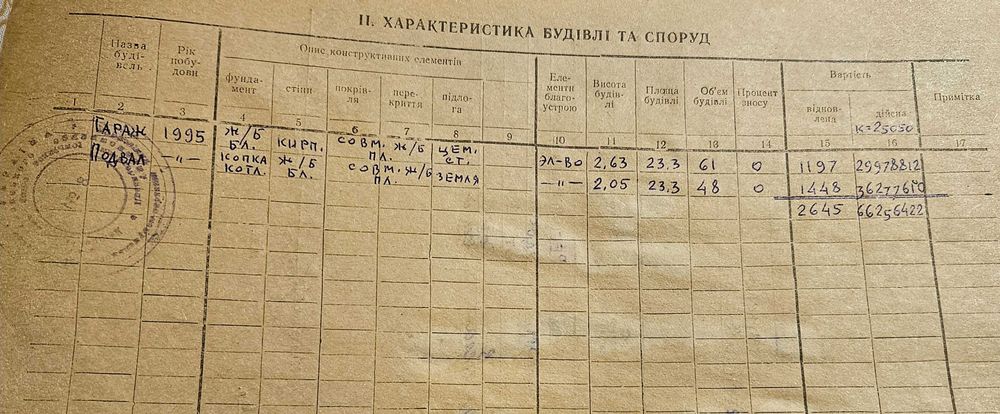 II. ХАРАКТЕРИСТИКА БУДІВЛІ ТА СПОРУД
Назва будівель
Рік побудови
Опис конструктивних елементів
Елементи благоустрою
Висота будівлі
Площа будівлі
Об'єм будівлі
Процент зносу
Вартість
Примітка
фундамент стіни покрівля перекриття підлога
відновлена дійсна
К=25050
1 2 3 4 5 6 7 8 9 10 11 12 13 14 15 16 17
ГАРАЖ 1995 Ж/Б БЛ. КИРП. СОВМ. ПЛ. Ж/Б ЦЕМ. СТ. ЭЛ-ВО 2,63 23.3 61 0 1197 29978812
ПОДВАЛ —„— КОПКА КОТЛ. Ж/Б БЛ. СОВМ. ПЛ. Ж/Б ЗЕМЛЯ —„— 2,05 23.3 48 0 1448 36277610
2645 66256422